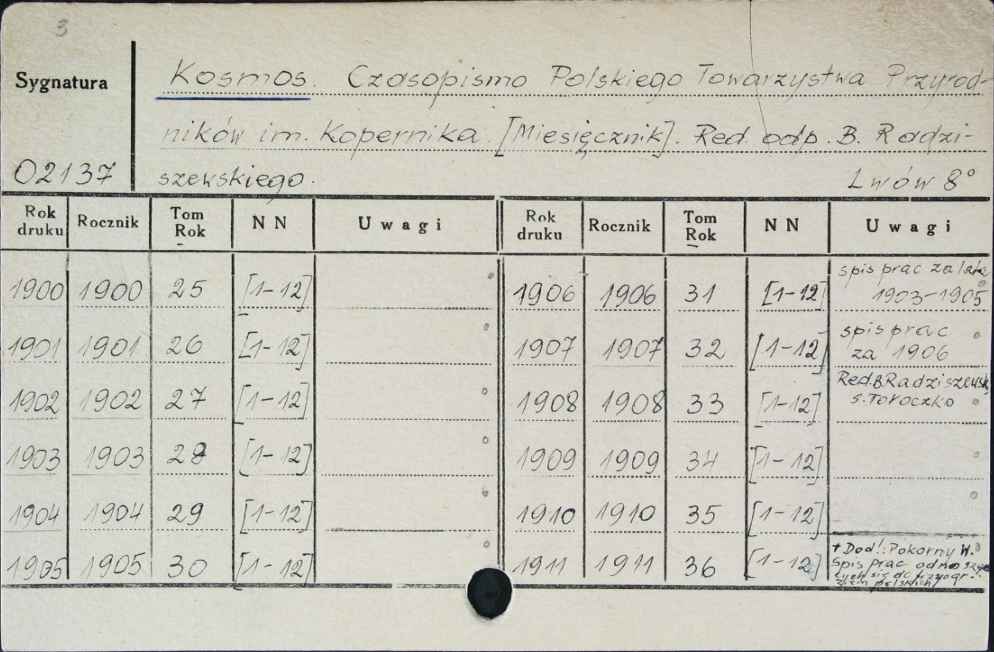 3
Sygnatura
Kosmos. Czasopismo Polskiego Towarzystwa Przyrod-
ników im. Kopernika. [Miesięcznik]. Red. odp. B. Radzi-
02137 szewskiego. Lwów 8°
Rok druku Rocznik Tom Rok NN Uwagi Rok druku Rocznik Tom Rok NN Uwagi
1900 1900 25 [1-12] 1906 1906 31 [1-12] spis prac za lata 1903-1905
1901 1901 26 [1-12] 1907 1907 32 [1-12] spis prac za 1906
1902 1902 27 [1-12] 1908 1908 33 [1-12] Red. B Radziszewski s. Toroczko
1903 1903 28 [1-12] 1909 1909 34 [1-12]
1904 1904 29 [1-12] 1910 1910 35 [1-12]
1905 1905 30 [1-12] 1911 1911 36 [1-12] + Dod!: Pokorny W. Spis prac odnoszą cych się do fizyogr. ziem polskich/